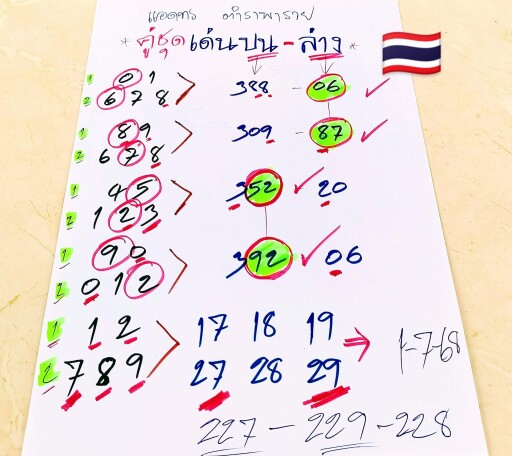 แอดทร ตำราพารวย
* คู่ชุดเด่นบน - ล่าง *
1 01
2 678 > 388 - 06
1 89
2 678 > 309 - 87
1 45
2 123 > 352 20
1 90
2 012 > 392 06
1 12 17 18 19
2 789 > 27 28 29 → 1-7-68
227 - 229 - 228